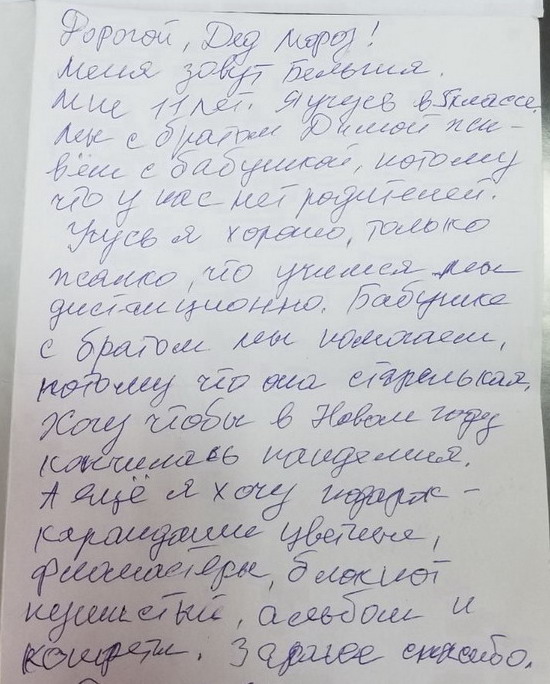 Дорогой, Дед Мороз!
Меня зовут
Мне 11 лет. Я учусь в 5 классе.
Мы с братом Димой жи-
вём с бабушкой, потому
что у нас нет родителей.
Учусь я хорошо, только
жалко, что учимся мы
дистанционно. Бабушке
с братом мы помогаем,
потому что она старенькая.
Хочу чтобы в Новом году
кончилась пандемия.
А ещё я хочу подарк-
карандаши цветные,
фломастеры, блокнот
пушистый, альбом и
конфеты. Заранее спасибо.